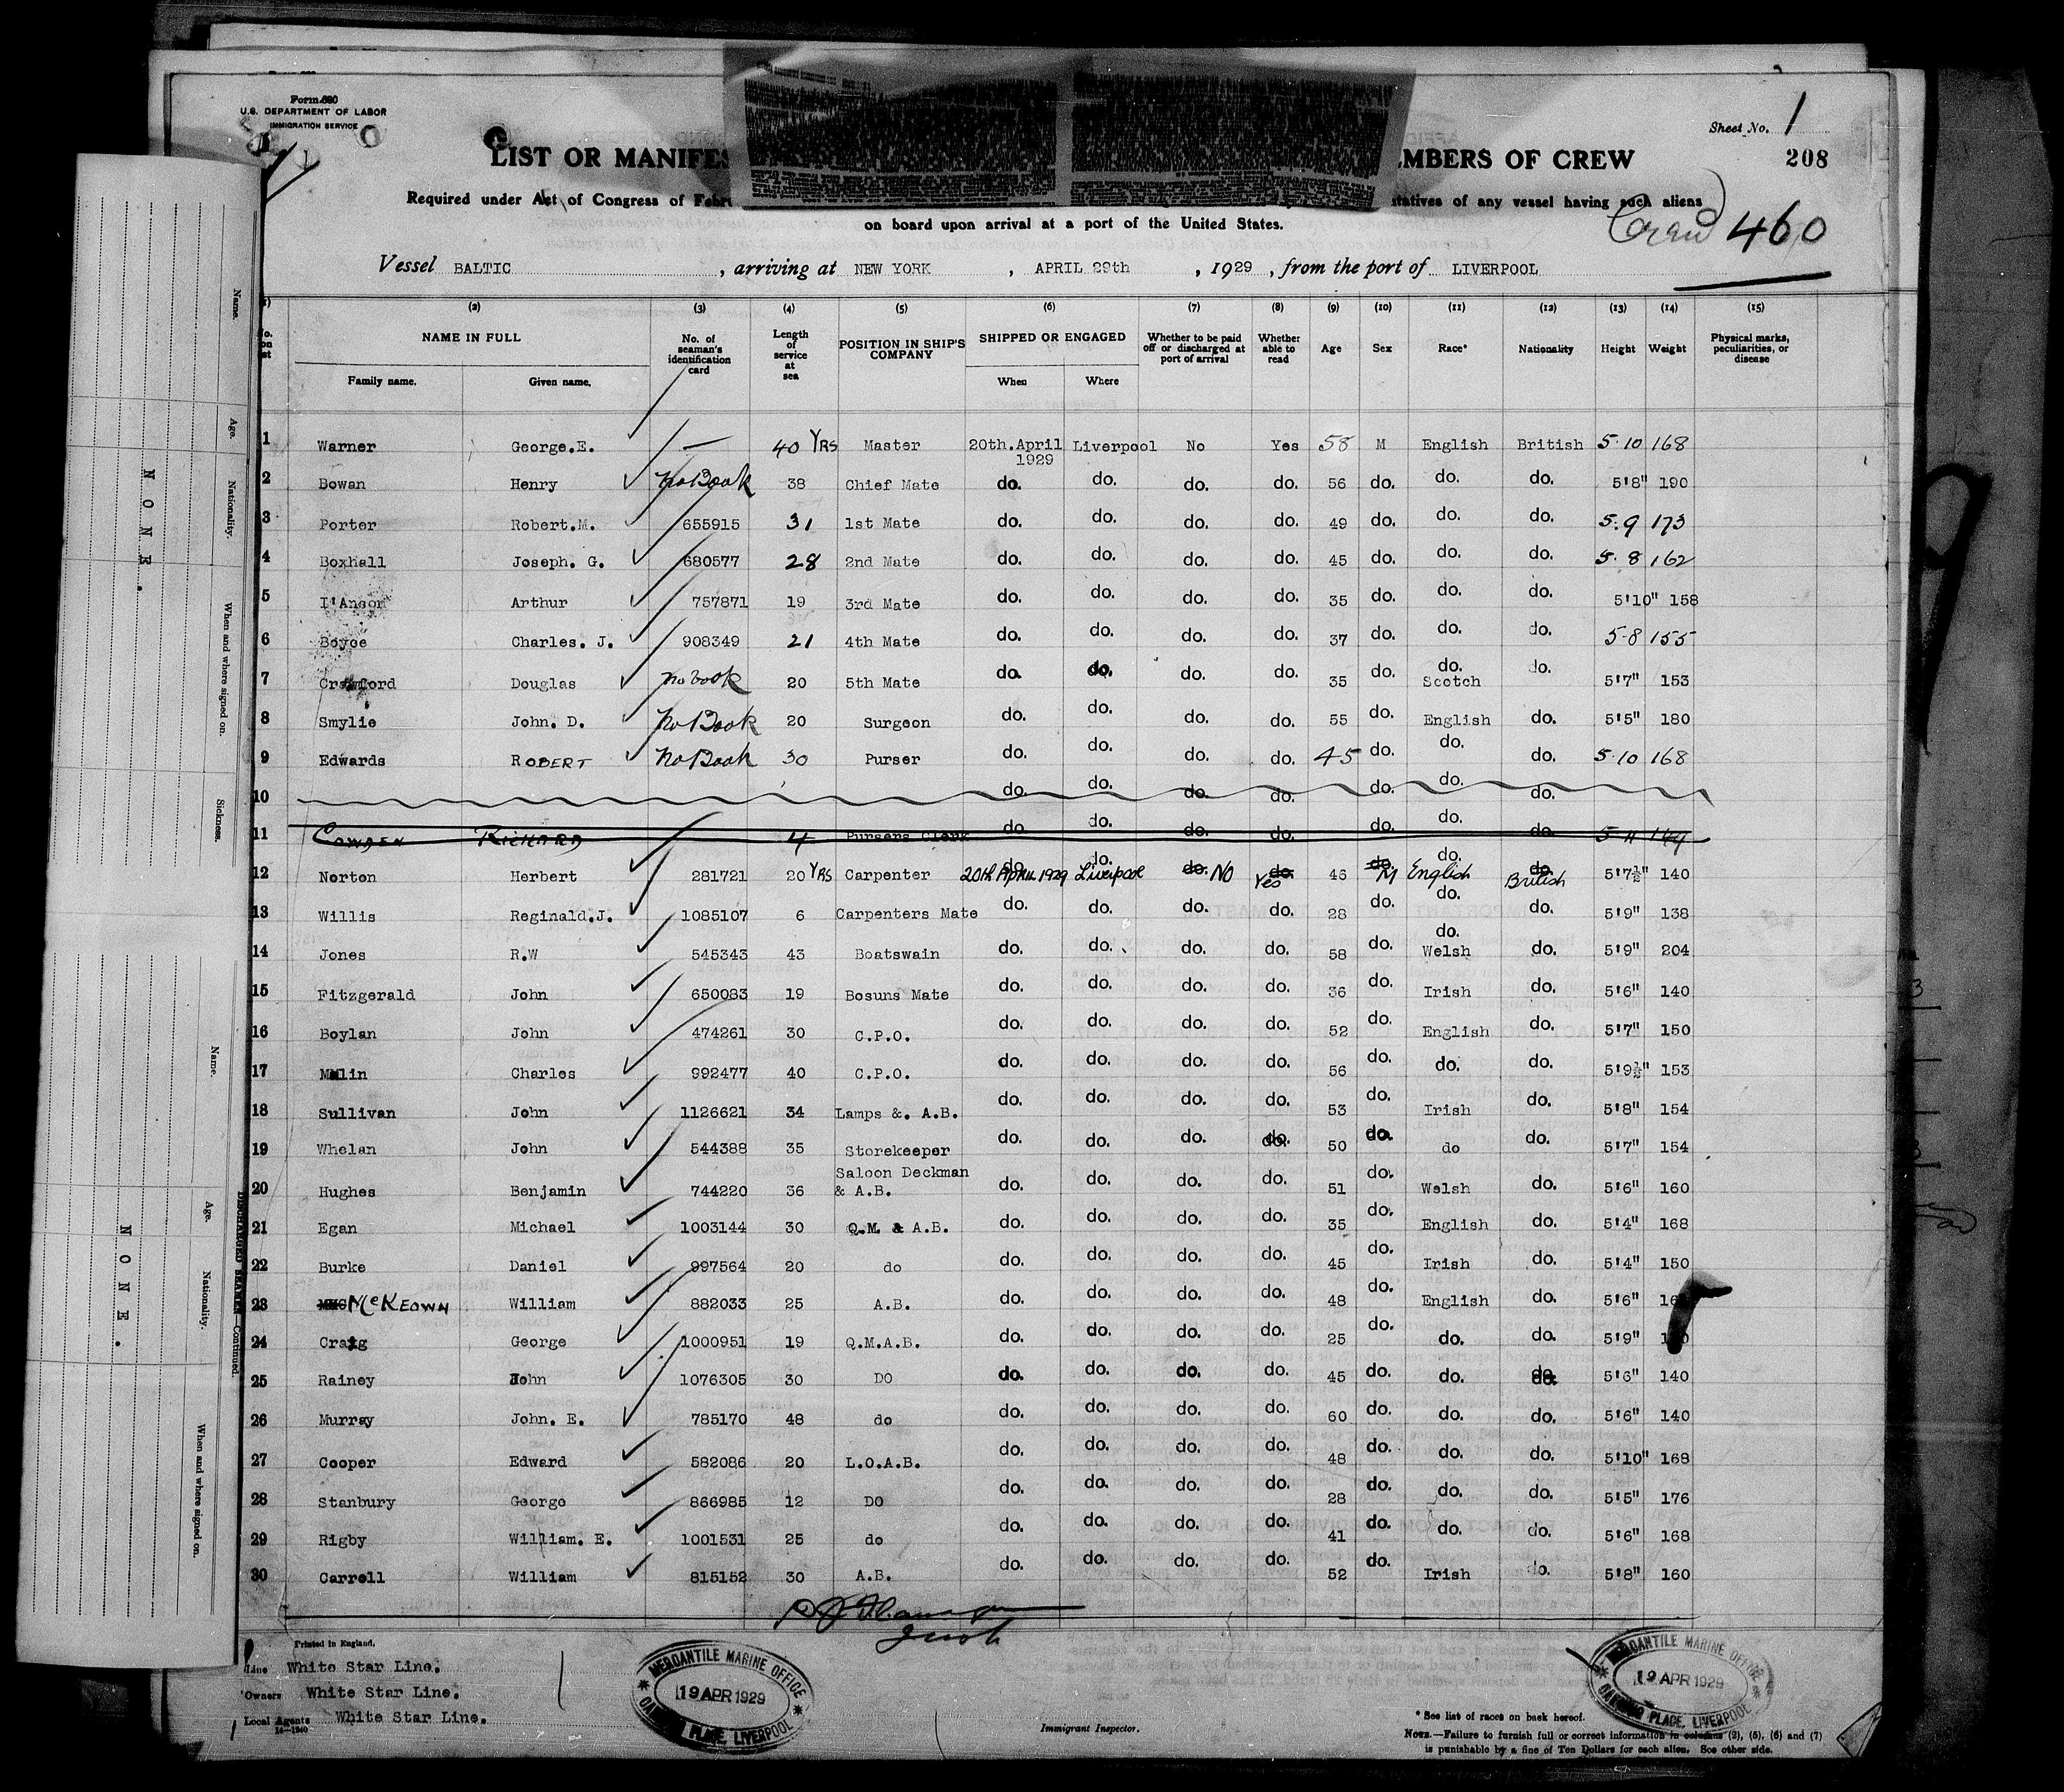 Form 680
U.S. DEPARTMENT OF LABOR
IMMIGRATION SERVICE
Sheet No. 1
208
LIST OR MANIFES MBERS OF CREW
Required under Act of Congress of Febru tatives of any vessel having such aliens
on board upon arrival at a port of the United States.
Crew 460
Vessel BALTIC, arriving at NEW YORK, APRIL 29th, 1929, from the port of LIVERPOOL
(2) (3) (4) (5) (6) (7) (8) (9) (10) (11) (12) (13) (14) (15)
NAME IN FULL No. of seaman's identification card Length of service at sea POSITION IN SHIP'S COMPANY SHIPPED OR ENGAGED Whether to be paid off or discharged at port of arrival Whether able to read Age Sex Race* Nationality Height Weight Physical marks, peculiarities, or disease
Family name. Given name. When Where
1 Warner George.E. — 40 YRS Master 20th.April 1929 Liverpool No Yes 58 M English British 5·10 168
2 Bowan Henry No Book 38 Chief Mate do. do. do. do. 56 do. do. do. 5'8" 190
3 Porter Robert.M. 655915 31 1st Mate do. do. do. do. 49 do. do. do. 5.9 173
4 Boxhall Joseph. G. 680577 28 2nd Mate do. do. do. do. 45 do. do. do. 5.8 162
5 I'Anson Arthur 757871 19 3rd Mate do. do. do. do. 35 do. do. do. 5'10" 158
6 Boyce Charles. J. 908349 21 4th Mate do. do. do. do. 37 do. do. do. 5-8 155
7 Crawford Douglas no book 20 5th Mate do. do. do. do. 35 do. do. Scotch do. 5'7" 153
8 Smylie John. D. No Book 20 Surgeon do. do. do. do. 55 do. English do. 5'5" 180
9 Edwards ROBERT No Book 30 Purser do. do. do. do. 45 do. do. do. 5·10 168
10 do. do. do. do. do. do. do.
11 COWDEN RICHARD 4 Pursers Clerk do. do. do. do. do. do. do. 5-11 149
12 Norton Herbert 281721 20 YRS Carpenter do. 20th April 1929 do. Liverpool do. NO do. Yes 46 do. M do. English do. British 5'7½" 140
13 Willis Reginald.J. 1085107 6 Carpenters Mate do. do. do. do. 28 do. do. do. 5'9" 138
14 Jones R.W 545343 43 Boatswain do. do. do. do. 58 do. do. Welsh do. 5'9" 204
15 Fitzgerald John 650083 19 Bosuns Mate do. do. do. do. 36 do. Irish do. 5'6" 140
16 Boylan John 474261 30 C.P.O. do. do. do. do. 52 do. English do. 5'7" 150
17 Malin Charles 992477 40 C.P.O. do. do. do. do. 56 do. do. do. 5'9½" 153
18 Sullivan John 1126621 34 Lamps &. A.B. do. do. do. do. 53 do. Irish do. 5'8" 154
19 Whelan John 544388 35 Storekeeper do. do. do. do. 50 do. do do. 5'7" 154
20 Hughes Benjamin 744220 36 Saloon Deckman & A.B. do. do. do. do. 51 do. Welsh do. 5'6" 160
21 Egan Michael 1003144 30 Q.M. & A.B. do. do. do. do. 35 do. English do. 5'4" 168
22 Burke Daniel 997564 20 do do. do. do. do. 45 do. Irish do. 5'4" 150
23 McKEOWN William 882033 25 A.B. do. do. do. do. 48 do. English do. 5'6"
24 Craig George 1000951 19 Q.M.A.B. do. do. do. do. 25 do. do. do. 5'9"
25 Rainey John 1076305 30 DO do. do. do. do. 45 do. do. do. 5'6" 140
26 Murray John. E. 785170 48 do do. do. do. do. 60 do. do. do. 5'6" 140
27 Cooper Edward 582086 20 L.O.A.B. do. do. do. do. 48 do. do. do. 5'10" 168
28 Stanbury George 866985 12 DO do. do. do. do. 28 do. do. do. 5'5" 176
29 Rigby William. E. 1001531 25 do do. do. do. do. 41 do. do. do. 5'6" 168
30 Carroll William 815152 30 A.B. do. do. do. do. 52 do. Irish do. 5'8" 160
Printed in England.
Line White Star Line.
Owners White Star Line.
Local Agents White Star Line.
14—1240
MERCANTILE MARINE OFFICE
19 APR 1929
PLACE, LIVERPOOL
Immigrant Inspector.
MERCANTILE MARINE OFFICE
19 APR 1929
PLACE, LIVERPOOL
* See list of races on back hereof.
NOTE.—Failure to furnish full or correct information in columns (2), (5), (6) and (7)
is punishable by a fine of Ten Dollars for each alien. See other side.
Name.
Age.
Nationality.
When and where signed on.
Sickness.
NONE.
Name.
Age.
Nationality.
When and where signed on.
NONE.
DISCHARGED SEAMEN—Continued.